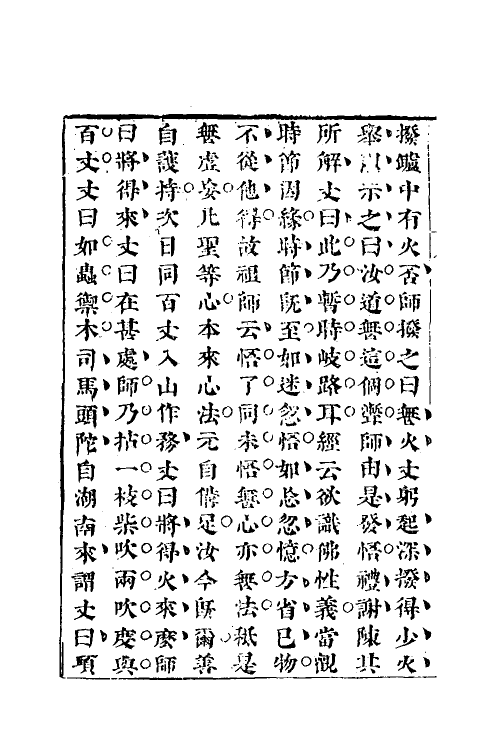 撥鑪中有火否師撥之曰無火丈躬起深撥得少火
舉以示之曰汝道無這個聻師由是發悟禮謝陳其
所解丈曰此乃暫時岐路耳經云欲識佛性義當觀
時節因緣時節既至如迷忽悟如忘忽憶方省己物
不從他得故祖師云悟了同未悟無心亦無法秪是
無虛妄凡聖等心本來心法元自備足汝今既爾善
自護持次日同百丈入山作務丈曰將得火來麼師
曰將得來丈曰在甚處師乃拈一枝柴吹兩吹度與
百丈丈曰如蟲禦木司馬頭陀自湖南來謂丈曰頃